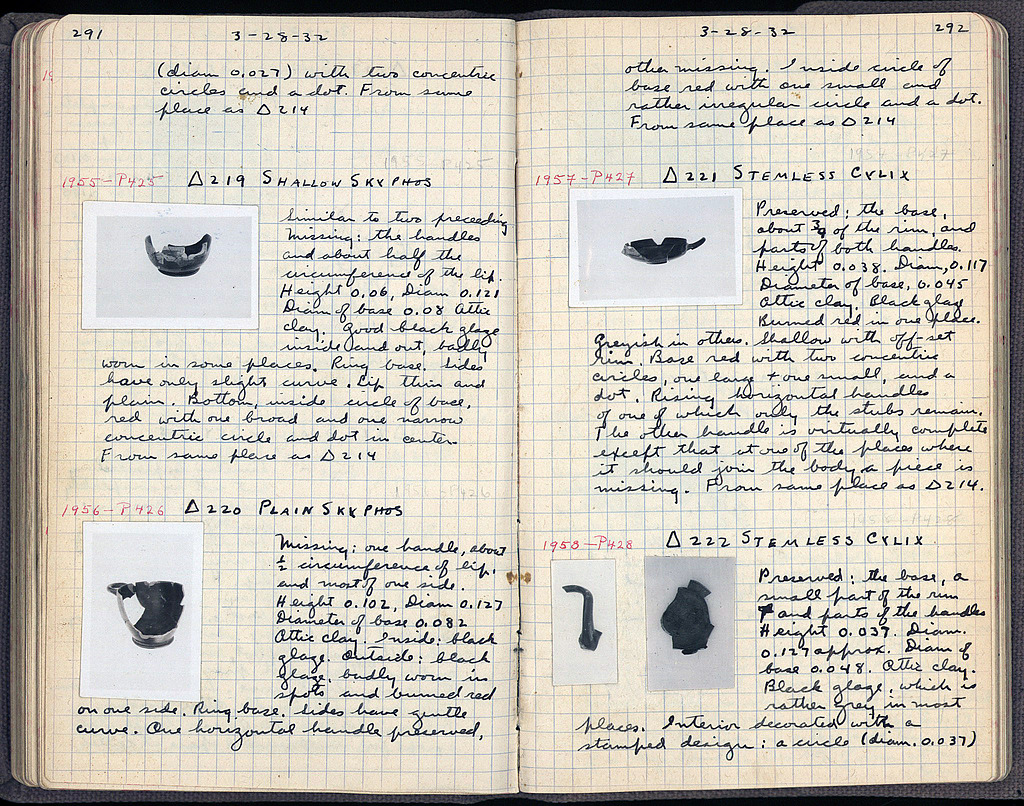 291
3-28-32
(diam 0.027) with two concentric
circles and a dot. From same
place as Δ 214
1955-P425 Δ 219 SHALLOW SKYPHOS
Similar to two preceeding
Missing: the handles
and about half the
circumference of the lip.
Height 0.06, Diam 0.121
Diam of base 0.08 Attic
clay. Good black glaze
inside and out, badly
worn in some places. Ring base. Sides
have only slight curve. Lip thin and
plain. Bottom, inside circle of base,
red with one broad and one narrow
concentric circle and dot in center
From same place as Δ 214
1956-P426 Δ 220 PLAIN SKYPHOS
Missing: one handle, about
½ circumference of lip,
and most of one side.
Height 0.102, Diam 0.127
Diameter of base 0.082
Attic clay. Inside: black
glaze. Outside: black
glaze, badly worn in
spots and burned red
on one side. Ring base. Sides have gentle
curve. One horizontal handle preserved,
3-28-32
292
other missing. Inside circle of
base red with one small and
rather irregular circle and a dot.
From same place as Δ 214
1957-P427 Δ 221 STEMLESS CYLIX
Preserved: the base,
about of the rim, and
parts of both handles.
Height 0.038. Diam, 0.117
Diameter of base, 0.045
Attic clay. Black glaze
Burned red in one place.
Greyish in others. Shallow with off-set
rim. Base red with two concentric
circles, one large + one small, and a
dot. Rising horizontal handles
of one of which only the stubs remain.
The other handle is virtually complete
except that at one of the places where
it should join the body a piece is
missing. From same place as Δ 214.
1958-P428 Δ 222 STEMLESS CYLIX
Preserved: the base, a
small part of the rim
and parts of the handles
Height 0.037. Diam.
0.127 approx. Diam of
base 0.048. Attic clay.
Black glaze, which is
rather grey in most
places. Interior decorated with a
stamped design: a circle (diam. 0.037)